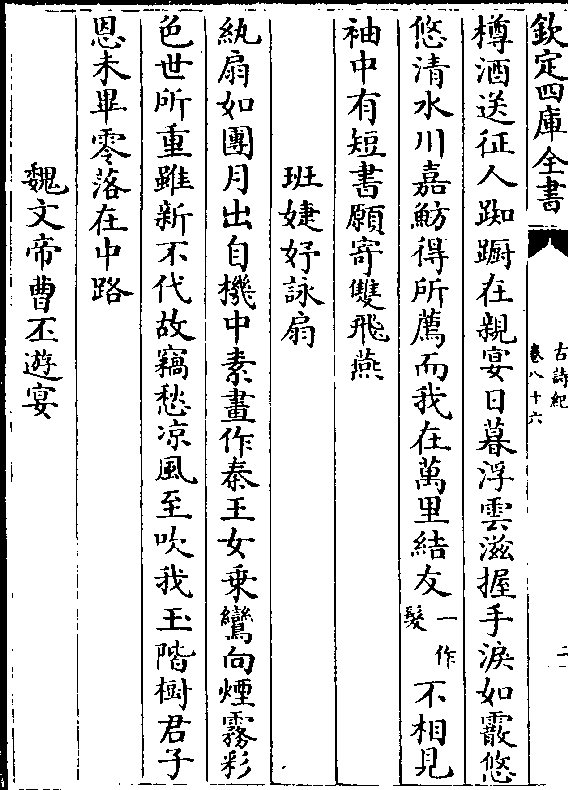 欽定四庫全書
古詩紀
卷八十六
二
樽酒送征人踟蹰在親宴日暮浮雲滋握手淚如霰悠
悠清水川嘉魴得所薦而我在萬里結友一作髮不相見
袖中有短書願寄雙飛燕
班婕妤詠扇
紈扇如團月出自機中素畫作秦王女乗鸞向煙霧彩
色世所重雖新不代故竊愁凉風至吹我玉階樹君子
恩未畢零落在中路
魏文帝曹丕遊宴